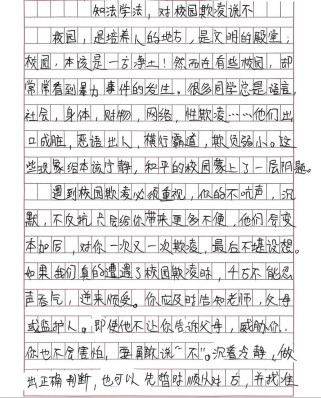 知法学法，对校园欺凌说不
校园，是培养人的地方，是文明的殿堂，
校园，本该是一方净土！然而在有些校园，却
常常看到暴力事件的发生。很多同学总是语言，
社会，身体，财物，网络，性欺凌……他们出
口成脏，恶语出人，横行霸道，欺负弱小。这
些现象给本该宁静，和平的校园蒙上了一层阴影。
遇到校园欺凌必须重视，你的不吭声，沉
默，不反抗只会给你带来更多不便，他们会变
本加厉，对你一次又一次欺凌，最后不堪设想。
如果我们真的遭遇了校园欺凌时，千万不能忍
声吞气，逆来顺受。你应及时告知老师，父母
或监护人。即使他不让你告诉父母，威胁你，
你也不会害怕，要勇敢说“不”。沉着冷静，做
出正确判断，也可以先暂时顺从对方，并找准